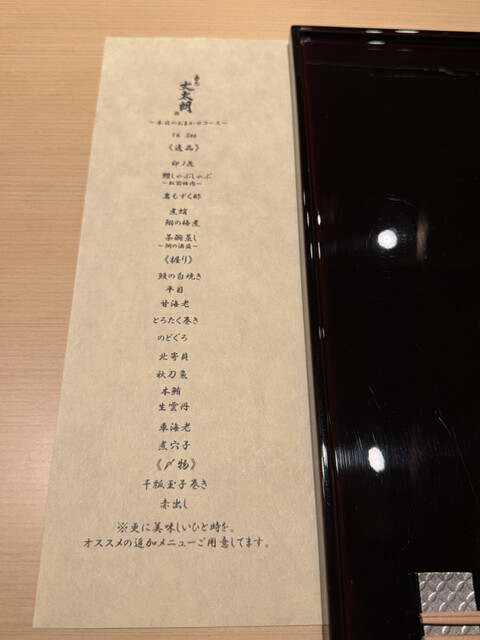 文太朗
～本日のおまかせコース～
16 Sep
《逸品》
卯ノ花
鱧しゃぶしゃぶ
～松前梅肉～
岩もずく酢
煮蛸
鰯の梅煮
茶碗蒸し
《握り》
鰻の白焼き
平目
甘海老
とろたく巻き
のどぐろ
北寄貝
秋刀魚
本鮪
生雲丹
車海老
煮穴子
《〆物》
干瓢玉子巻き
赤出し
※更に美味しいひと時を。
オススメの追加メニューご用意してます。